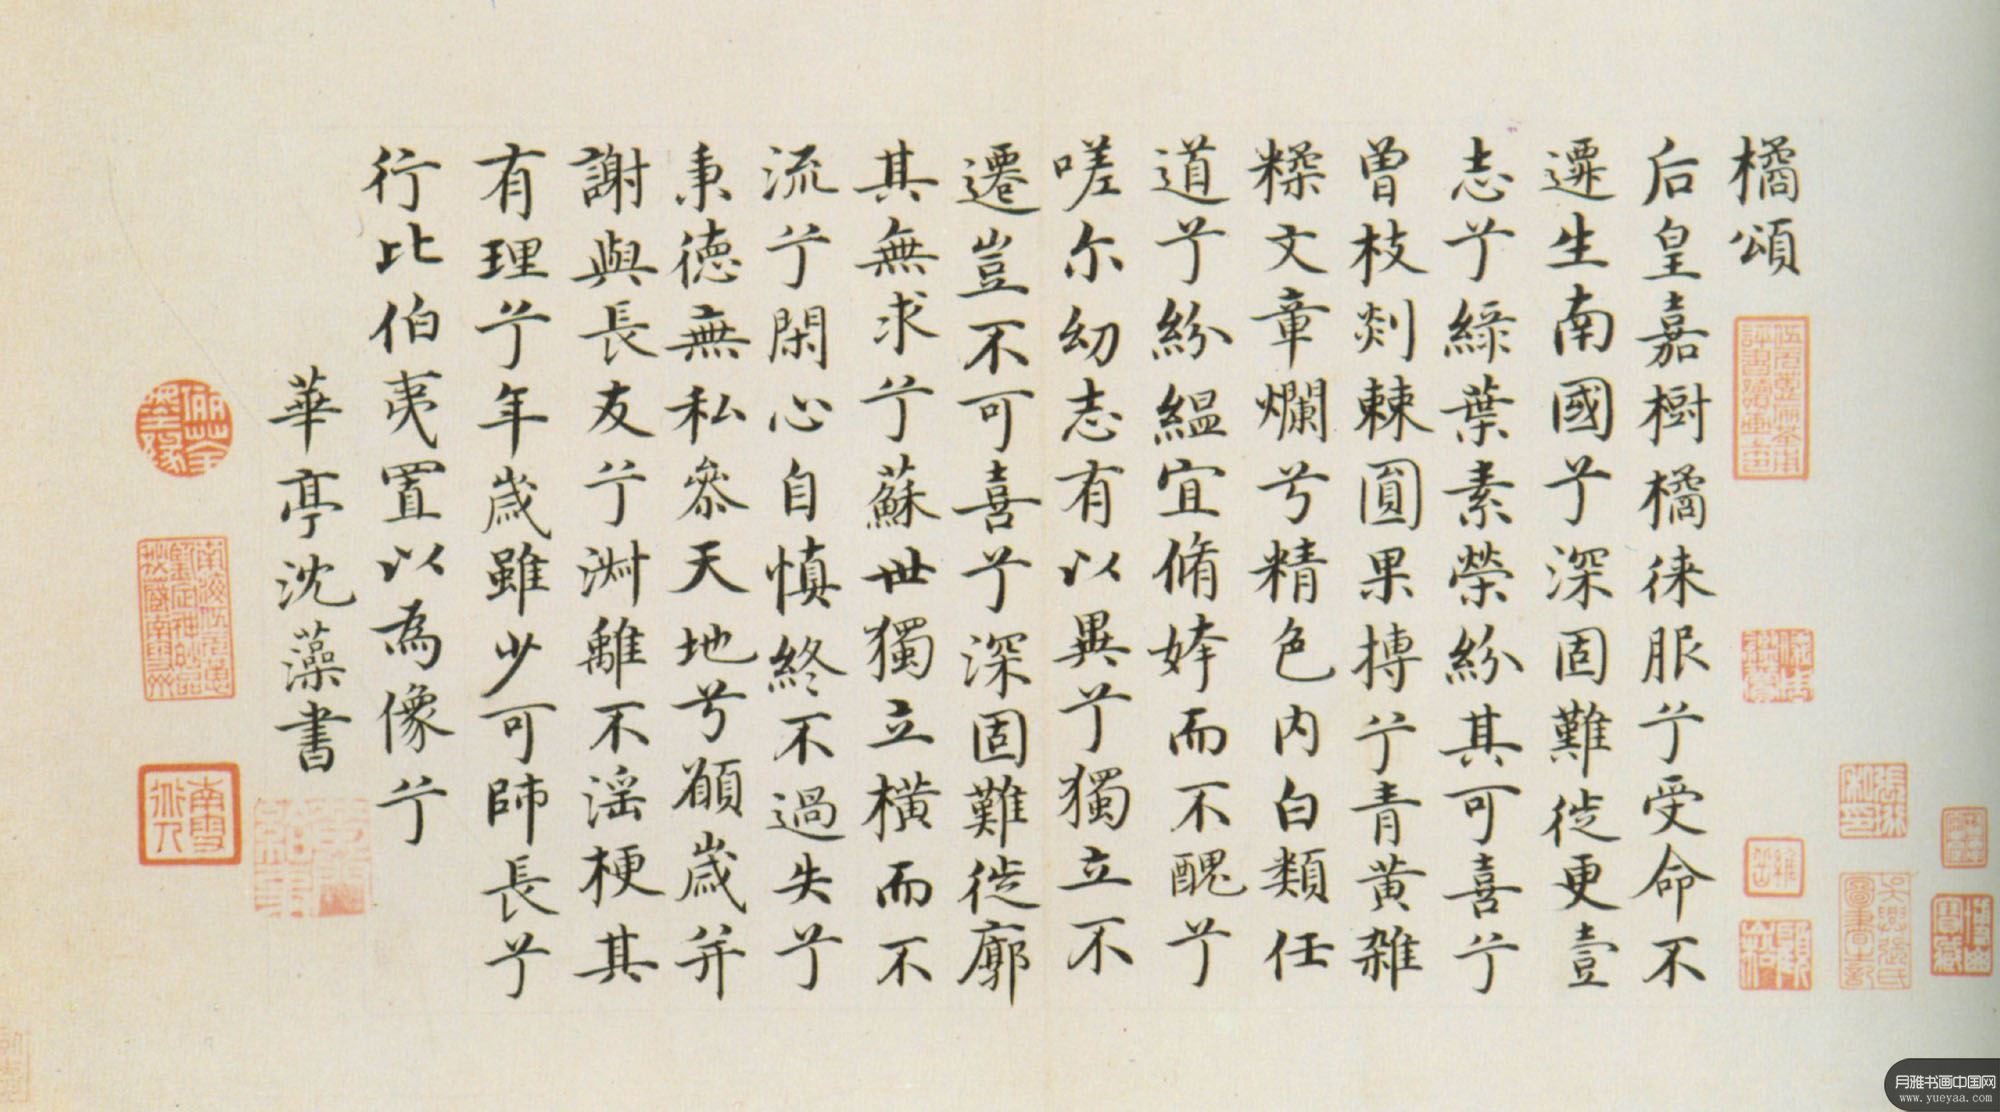 橘頌
后皇嘉樹橘徠服兮受命不
遷生南國兮深固難徙更壹
志兮綠葉素榮紛其可喜兮
曾枝剡棘圓果摶兮青黃雜
糅文章爛兮精色內白類任
道兮紛緼宜脩姱而不醜兮
嗟尔幼志有以異兮獨立不
遷豈不可喜兮深固難徙廓
其無求兮蘇世獨立橫而不
流兮閑心自慎終不過失兮
秉德無私參天地兮願歲并
謝與長友兮淑離不淫梗其
有理兮年歲雖少可師長兮
行比伯夷置以為像兮
華亭沈藻書
月雅书画中国网
www.yueyaa.com